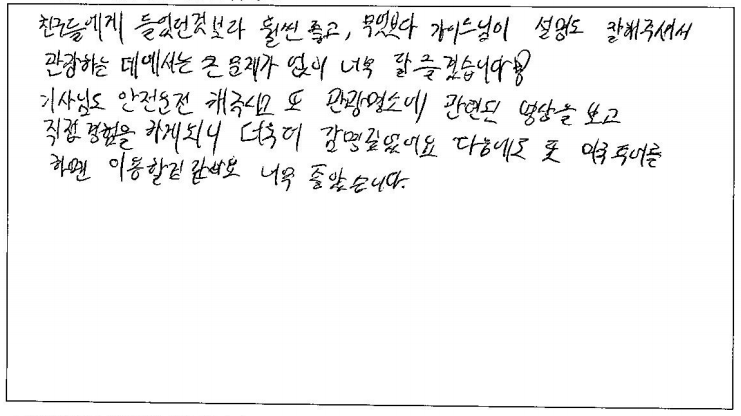 친구들에게 들었던것보다 훨씬 좋고, 무엇보다 가이드님이 설명도 잘해주셔서
관광하는 데에서는 큰 문제가 없이 너무 잘 즐겼습니다
기사님도 안전운전 해주시고 또 관광명소에 관련된 영상을 보고
직접 경험을 하게되니 더욱더 감명깊었어요 다음에도 또 미국투어를
하면 이용할것 같아요 너무 좋았습니다.